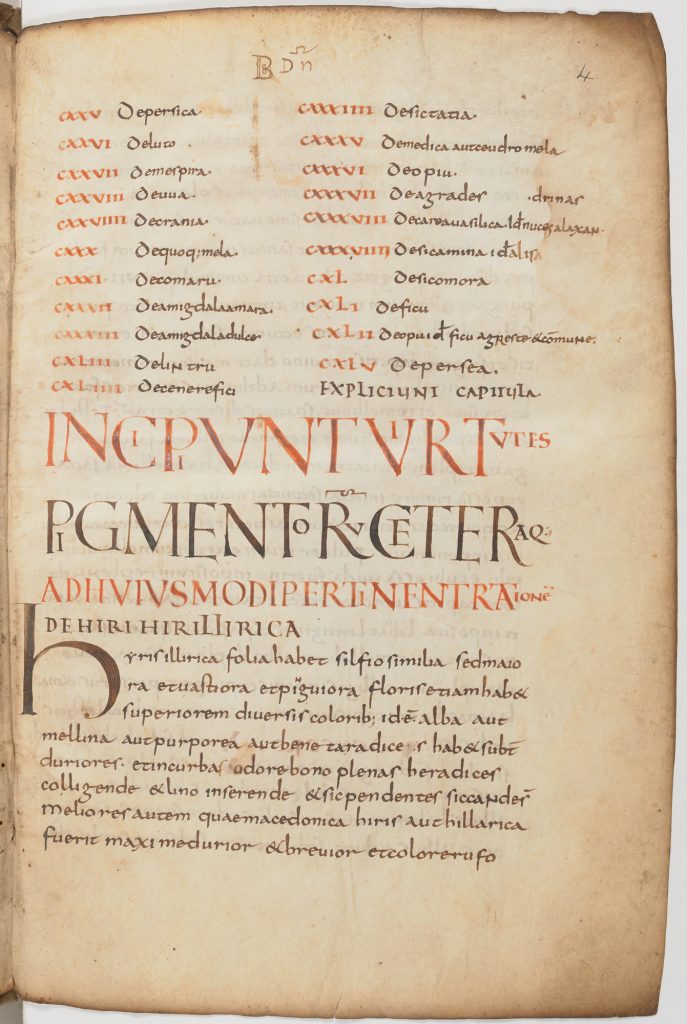 B Dn
4
CXXV Depersica·
CXXVI Deluto
CXXVII Demespira·
CXXVIII Deuua·
CXXVIIII Decrania·
CXXX Dequoq; mela·
CXXXI Decomaru·
CXXXII Deamigdalaamara·
CXXXIII Deamigdaladulce·
CXLIII Delintru
CXLIIII Decenerefici
CXXXIIII Desictatia·
CXXXV Demedica autceudromela
CXXXVI Deopiu·
CXXXVII Deagrades ·drinas
CXXXVIII
CXXXVIIII Desicamina
CXL Desicomora
CXLI Deficu
CXLII ficu agreste &cōmune·
CXLV Depersea·
EXPLICIUNT CAPITULA·
INCIPIUNT UIRTUTES
PIGMENTORU CETERAQ·
ADHUIUSMODIPERTINENTRATIONĒ
DEHIRIHIRILLIRICA
hyrisillirica folia habet silfio similia sedmaio
ra etuastiora etpi̅guiora florisetiamhab&
superiorem diuersis colorib; id·ē· alba aut
mellina autpurporea autbene taradice s hab& subt̄
duriores· etincurba& odorebono plenas heradices
colligende &lino inserende &sicpendentes siccandes̄
Meliores autem quaemacedonica hiris authillarica
fuerit maximedurior &breuior etcolorerufo